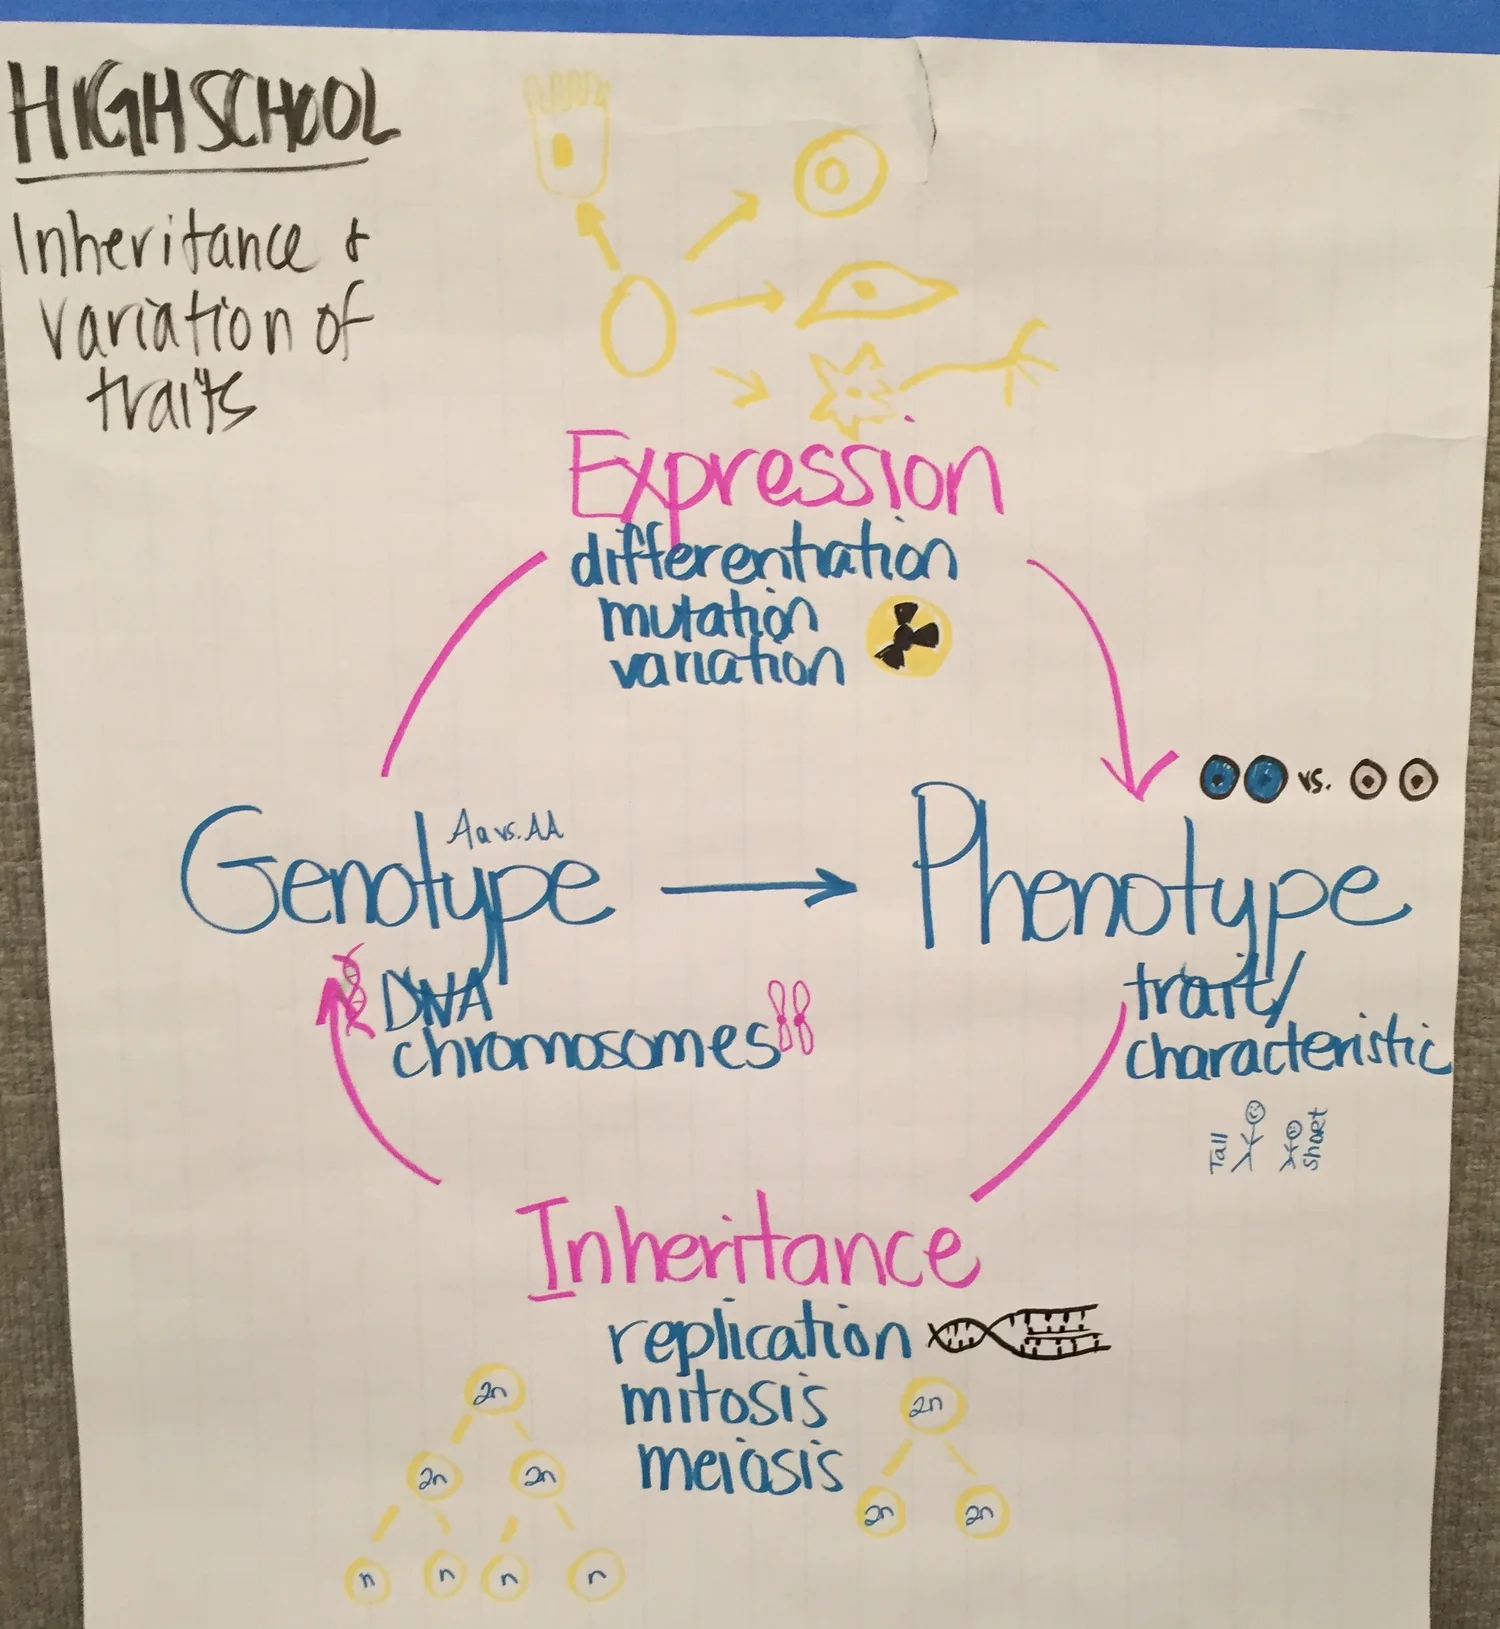 HIGH SCHOOL
Inheritance &
variation of
traits
Expression
differentiation
mutation
variation
vs.
Aa vs. AA
Genotype
Phenotype
DNA
chromosomes
trait/
characteristic
Tall
Short
Inheritance
replication
mitosis
meiosis
2n
2n 2n
n n n n
2n
2n 2n